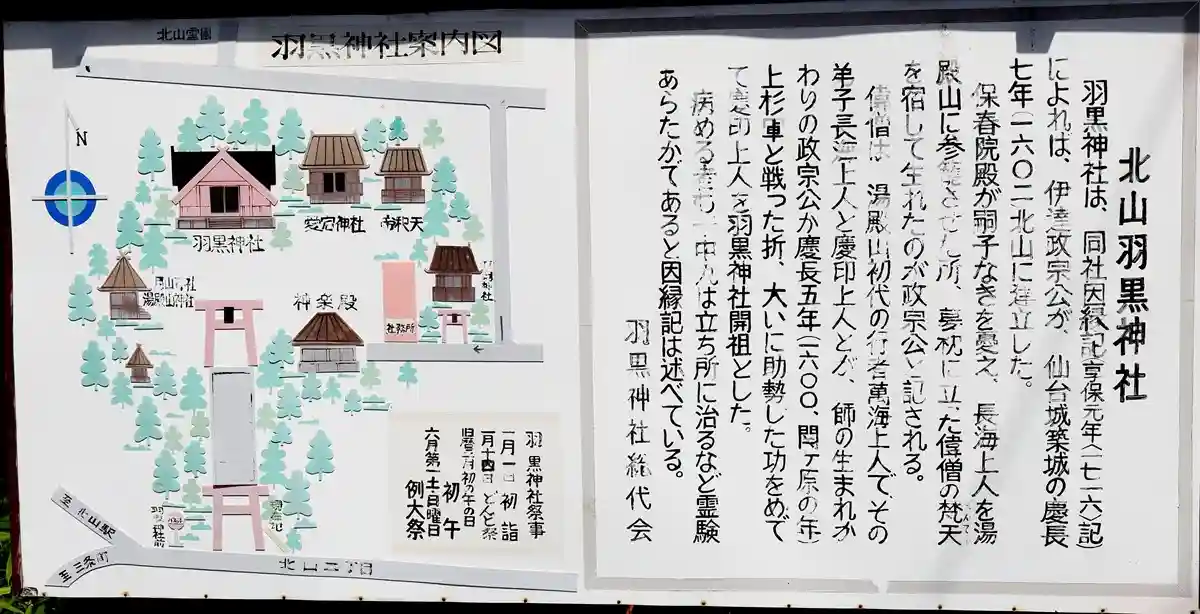 北山霊園
羽黒神社案内図
N
羽黒神社
愛宕神社
月山神社
湯殿山神社
神楽殿
社務所
羽黒神社祭事
一月一日 初詣
一月十四日 どんと祭
旧暦二月初の午の日
初午
六月第一土日曜日
例大祭
至北山駅
至三条町
北山二丁目
北山羽黒神社
羽黒神社は、同社因縁記享保元年(一七一六記)
によれば、伊達政宗公が、仙台城築城の慶長
七年(一六〇二北山に建立した。
保春院殿が嗣子なきを憂え、長海上人を湯
殿山に参籠させた所、夢枕に立った僧の梵天
を宿して生れたのが政宗公と記される。
湯殿山初代の行者萬海上人でその
弟子長海上人と慶印上人とが、師の生まれか
わりの政宗公が慶長五年(一六〇〇、関ヶ原の年)
上杉軍と戦った折、大いに助勢した功をめで
て慶印上人を羽黒神社開祖とした。
病める者も は立ち所に治るなど霊験
あらたかであると因縁記は述べている。
羽黒神社総代会